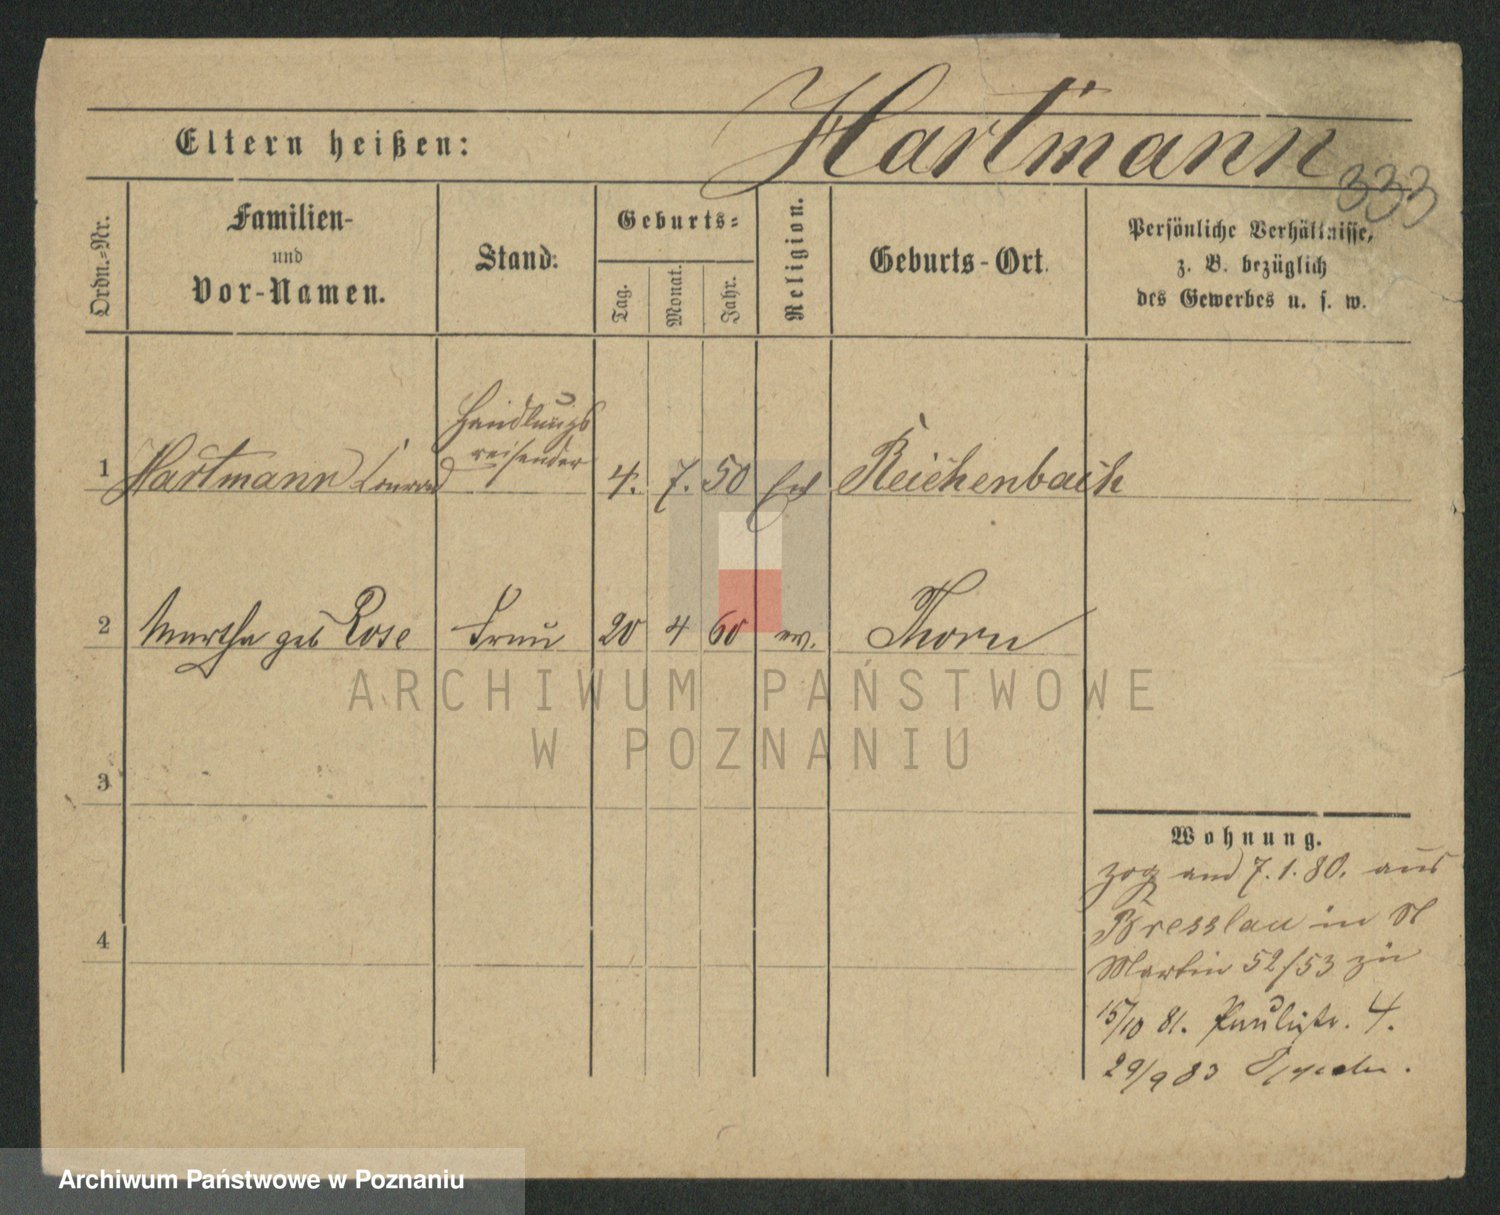 Hartmann
Eltern heißen:
333
Ordn.-Nr.
Familien-
und
Vor-Namen.
Stand.
Geburts-
Tag.
Monat.
Jahr.
Religion.
Geburts-Ort.
Persönliche Verhältnisse,
z. B. bezüglich
des Gewerbes u. s. w.
Handlungs
reisender
1 Hartmann Conrad 4. 7. 50 Reichenbach
2 Martha geb Rose Frau 20 4 60 ev. Thorn
ARCHIWUM PAŃSTWOWE
W POZNANIU
3
4
Wohnung.
zog am 7.1.80. aus
Bresslau in St
Martin 52/53 zu
15/10 81. Paulistr. 4.
29/9 83
Archiwum Państwowe w Poznaniu